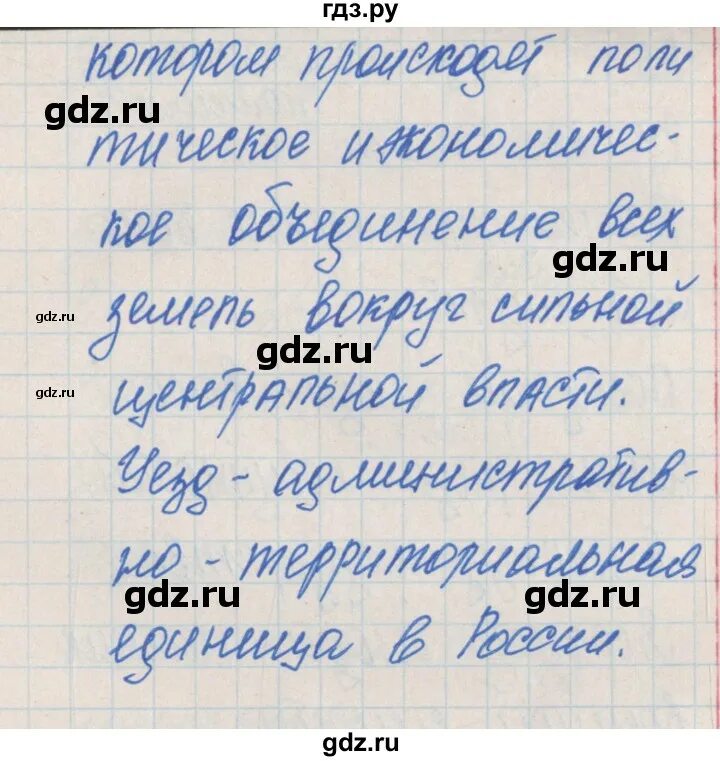 гдз.ру
котором происходят поли
gdz.ru
тическое и экономичес-
кое объединение всех
gdz.ru
gdz.ru земель вокруг сильной
gdz.ru
gdz.ru центральной власти.
Уезд - административ-
но - территориальная
gdz.ru gdz.ru
единица в России.
gdz.ru